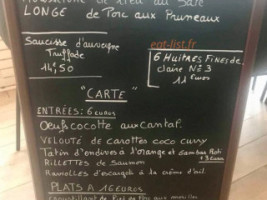 LONGE de Porc aux Pruneaux
Saucisse d'auvergne
Truffade
14,50
eat-list.fr
6 Huîtres Fines de
claire N° 3
11 Euros
"CARTE"
ENTRÉES: 6 euros
Oeufs cocotte aux cantal
VELOUTÉ de carottes coco curry
Tatin d'endives à l'orange et Jambon Roti
+ 3 Euros
RILLETTES de Saumon
Ravioles d'escargots à la crème d'ail
PLATS A 16 EUROS